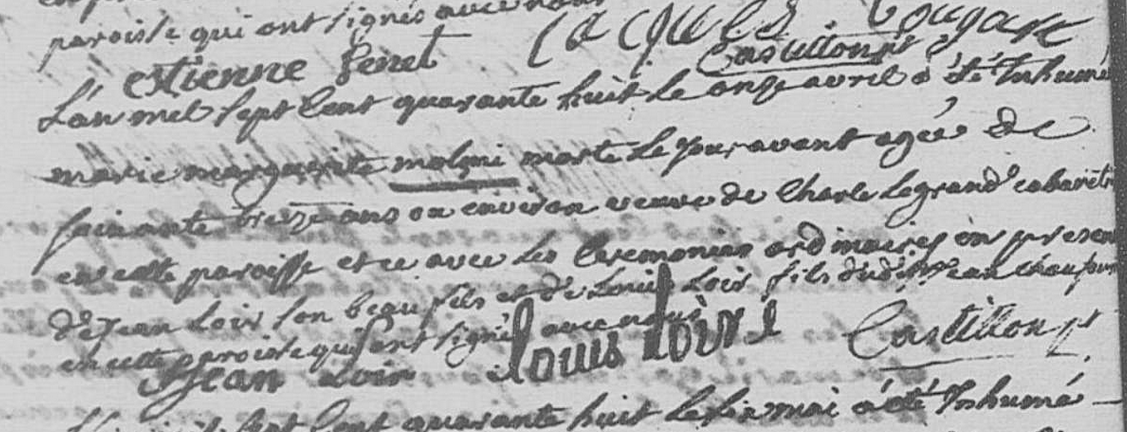 paroisse qui ont signés avec nous
Jacques Bougart
estienne fenet Castillon pt
L'an mel sept Cent quarante huit le onze avril a été Inhumé
marie marguerite molmi morte le jour avant agée de
soixante treize ans ou environ veuve de Charle Legrand cabareti
en cette paroisse et ce avec les Ceremonies ordinaires en presen
de Jean Loir son beau fils et de Louis Loir fils dudit Jean
en cette paroisse qui ont signé avec nous
Jean Loir Louis Loire Castillon pt
sept Cent quarante huit le six mai a été Inhumé